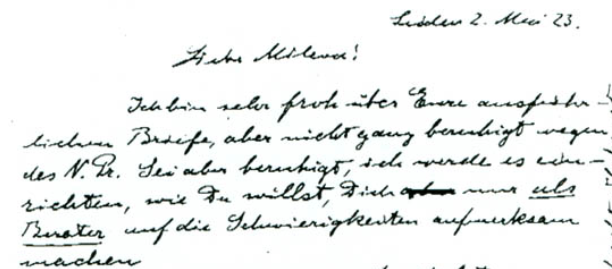 Leiden 2. Mai 23.
Liebe Mileva!
Ich bin sehr froh über Eure ausführ-
lichen Briefe, aber nicht ganz beruhigt wegen
des N. Pr. Sei aber beruhigt, ich werde es ein-
richten, wie Du willst, Dich nur als
Berater auf die Schwierigkeiten aufmerksam
machen